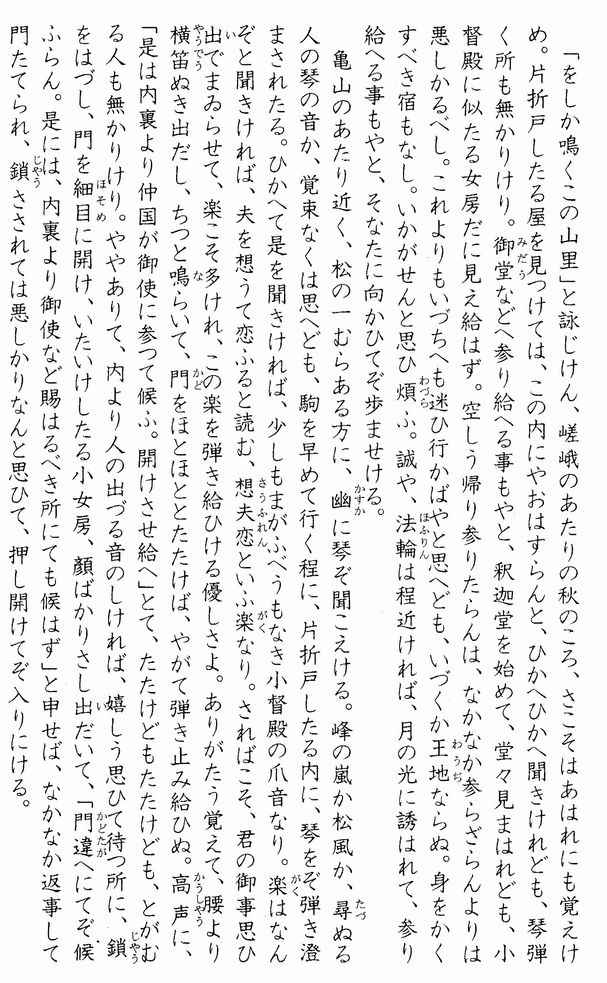 「をしか鳴くこの山里」と詠じけん、嵯峨のあたりの秋のころ、さこそはあはれにも覚えけ
め。片折戸したる屋を見つけては、この内にやおはすらんと、ひかへひかへ聞きけれども、琴弾
く所も無かりけり。御堂などへ参り給へる事もやと、釈迦堂を始めて、堂々見まはれども、小
督殿に似たる女房だに見え給はず。空しう帰り参りたらんは、なかなか参らざらんよりは
悪しかるべし。これよりもいづちへも迷ひ行かばやと思へども、いづくか王地ならぬ。身をかく
すべき宿もなし。いかがせんと思ひ煩ふ。誠や、法輪は程近ければ、月の光に誘はれて、参り
給へる事もやと、そなたに向かひてぞ歩ませける。
亀山のあたり近く、松の一むらある方に、幽に琴ぞ聞こえける。峰の嵐か松風か、尋ぬる
人の琴の音か、覚束なくは思へども、駒を早めて行く程に、片折戸したる内に、琴をぞ弾き澄
まされたる。ひかへて是を聞きければ、少しもまがふべうもなき小督殿の爪音なり。楽はなん
ぞと聞きければ、夫を想うて恋ふると読む、想夫恋といふ楽なり。さればこそ、君の御事思ひ
出でまゐらせて、楽こそ多けれ、この楽を弾き給ひける優しさよ。ありがたう覚えて、腰より
横笛ぬき出だし、ちつと鳴らいて、門をほとほととたたけば、やがて弾き止み給ひぬ。高声に、
「是は内裏より仲国が御使に参つて候ふ。開けさせ給へ」とて、たたけどもたたけども、とがむ
る人も無かりけり。ややありて、内より人の出づる音のしければ、嬉しう思ひて待つ所に、鎖
をはづし、門を細目に開け、いたいけしたる小女房、顔ばかりさし出だいて、「門違へにてぞ候
ふらん。是には、内裏より御使など賜はるべき所にても候はず」と申せば、なかなか返事して
門たてられ、鎖さされては悪しかりなんと思ひて、押し開けてぞ入りにける。